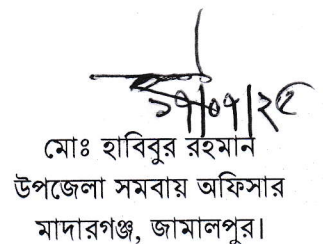 ১৭/০৭/২৫
মোঃ হাবিবুর রহমান
উপজেলা সমবায় অফিসার
মাদারগঞ্জ, জামালপুর।